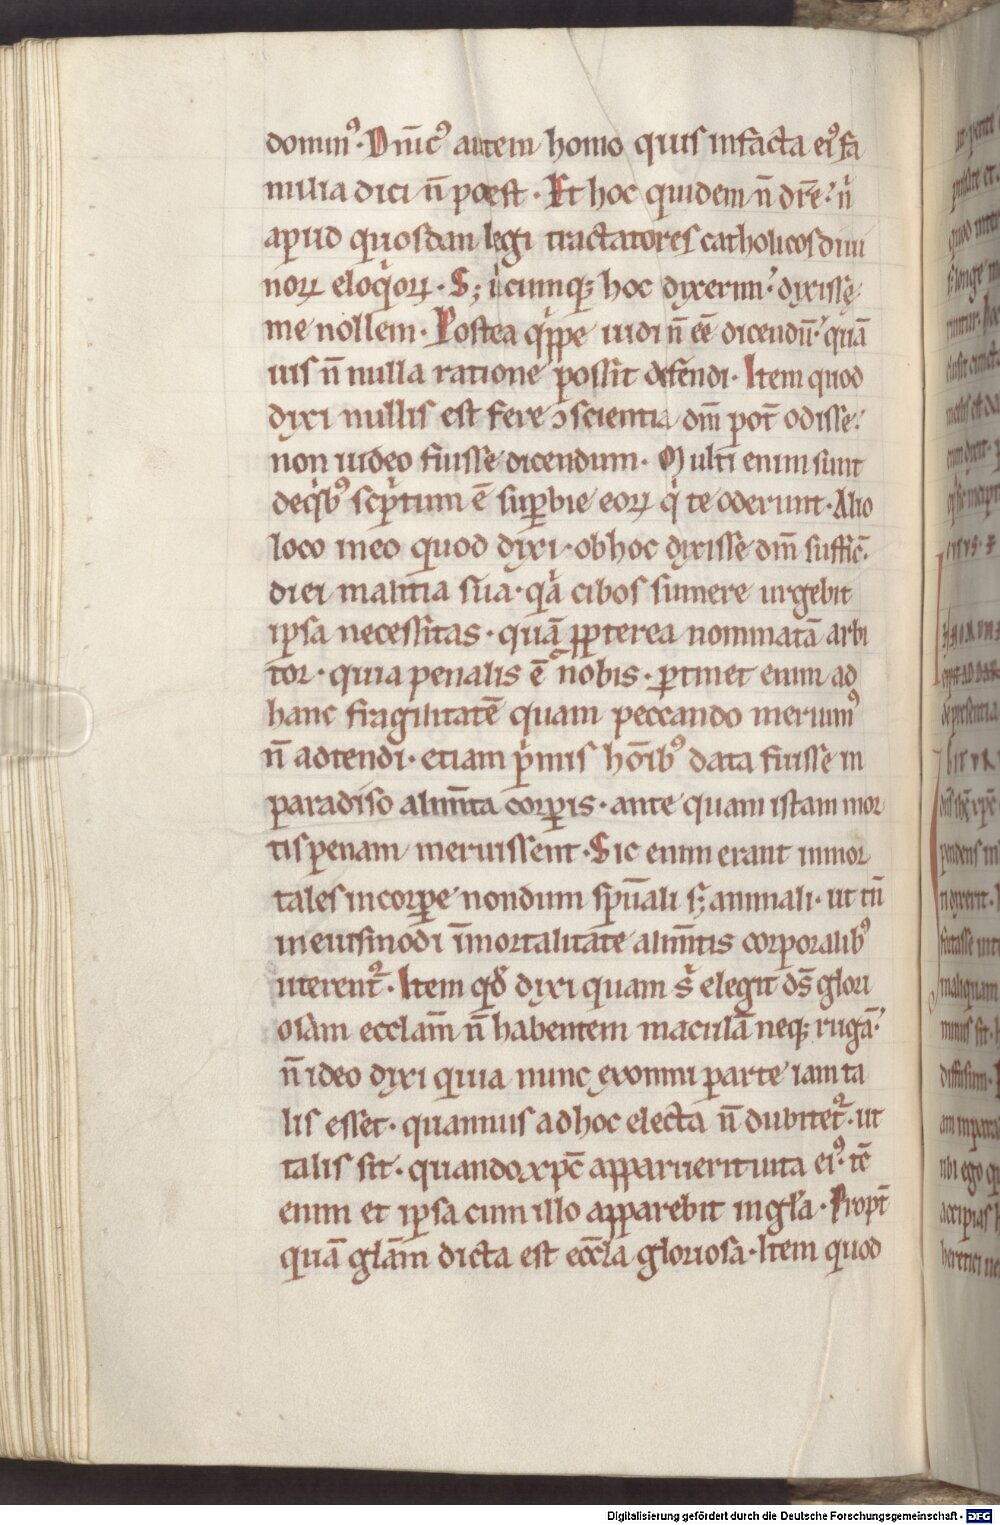 domin⁹. Dn̄ic⁹ autem homo quis infacta ei⁹ fa
milia dici n̄ potest. Et hoc quidem n̄ dr̄e: n̄
apud quosdam legi tractatores catholicos diui
noꝝ eloqͥoꝝ. S; ubicumq; hoc dixerim: dixisse
me nollem. Postea qͥppe uidi n̄ eē dicendū: quā
uis n̄ nulla ratione possit defendi. Item quod
dixi nullis est fere ɔscientia dm̄ pot̄ odisse:
non uideo fuisse dicendum. Multi enim sunt
deqͥb⁹ scͥptum ē superbie eoꝝ qͥ te oderunt. Alio
loco meo quod dixi. ob hoc dixisse dm̄ suffic̄
diei malitia sua. qͣ cibos sumere urgebit
ipsa necessitas. quā ꝓpterea nominatā arbi
tor. quia penalis ē nobis. ꝑtinet enim ad
hanc fragilitatē quam peccando meruim⁹
n̄ adtendi. etiam pͥmis hōib⁹ data fuisse in
paradiso alim̄ta corꝑis. ante quam istam mor
tis penam meruissent. Sic enim erant inmor
tales in corꝑe nondum sp̄uali s; animali. ut tn̄
in eiusmodi īmortalitate alim̄tis corporalib⁹
uterent᷑. Item qd̄ dixi quam sͥ elegit ds̄ glori
osam eccla᷑m n̄ habentem maculā neq; rugā:
n̄ ideo dixi quia nunc ex omni parte iam ta
lis esset. quamuis ad hoc electa n̄ dubitet᷑. ut
talis sit. quando xp̄c apparuerit uita ei⁹. tc̄
enim et ipsa cum illo apparebit in gl̄a. Propt̄
quā gl̄am dicta est eccl̄a gloriosa. Item quod
Digitalisierung gefördert durch die Deutsche Forschungsgemeinschaft - DFG